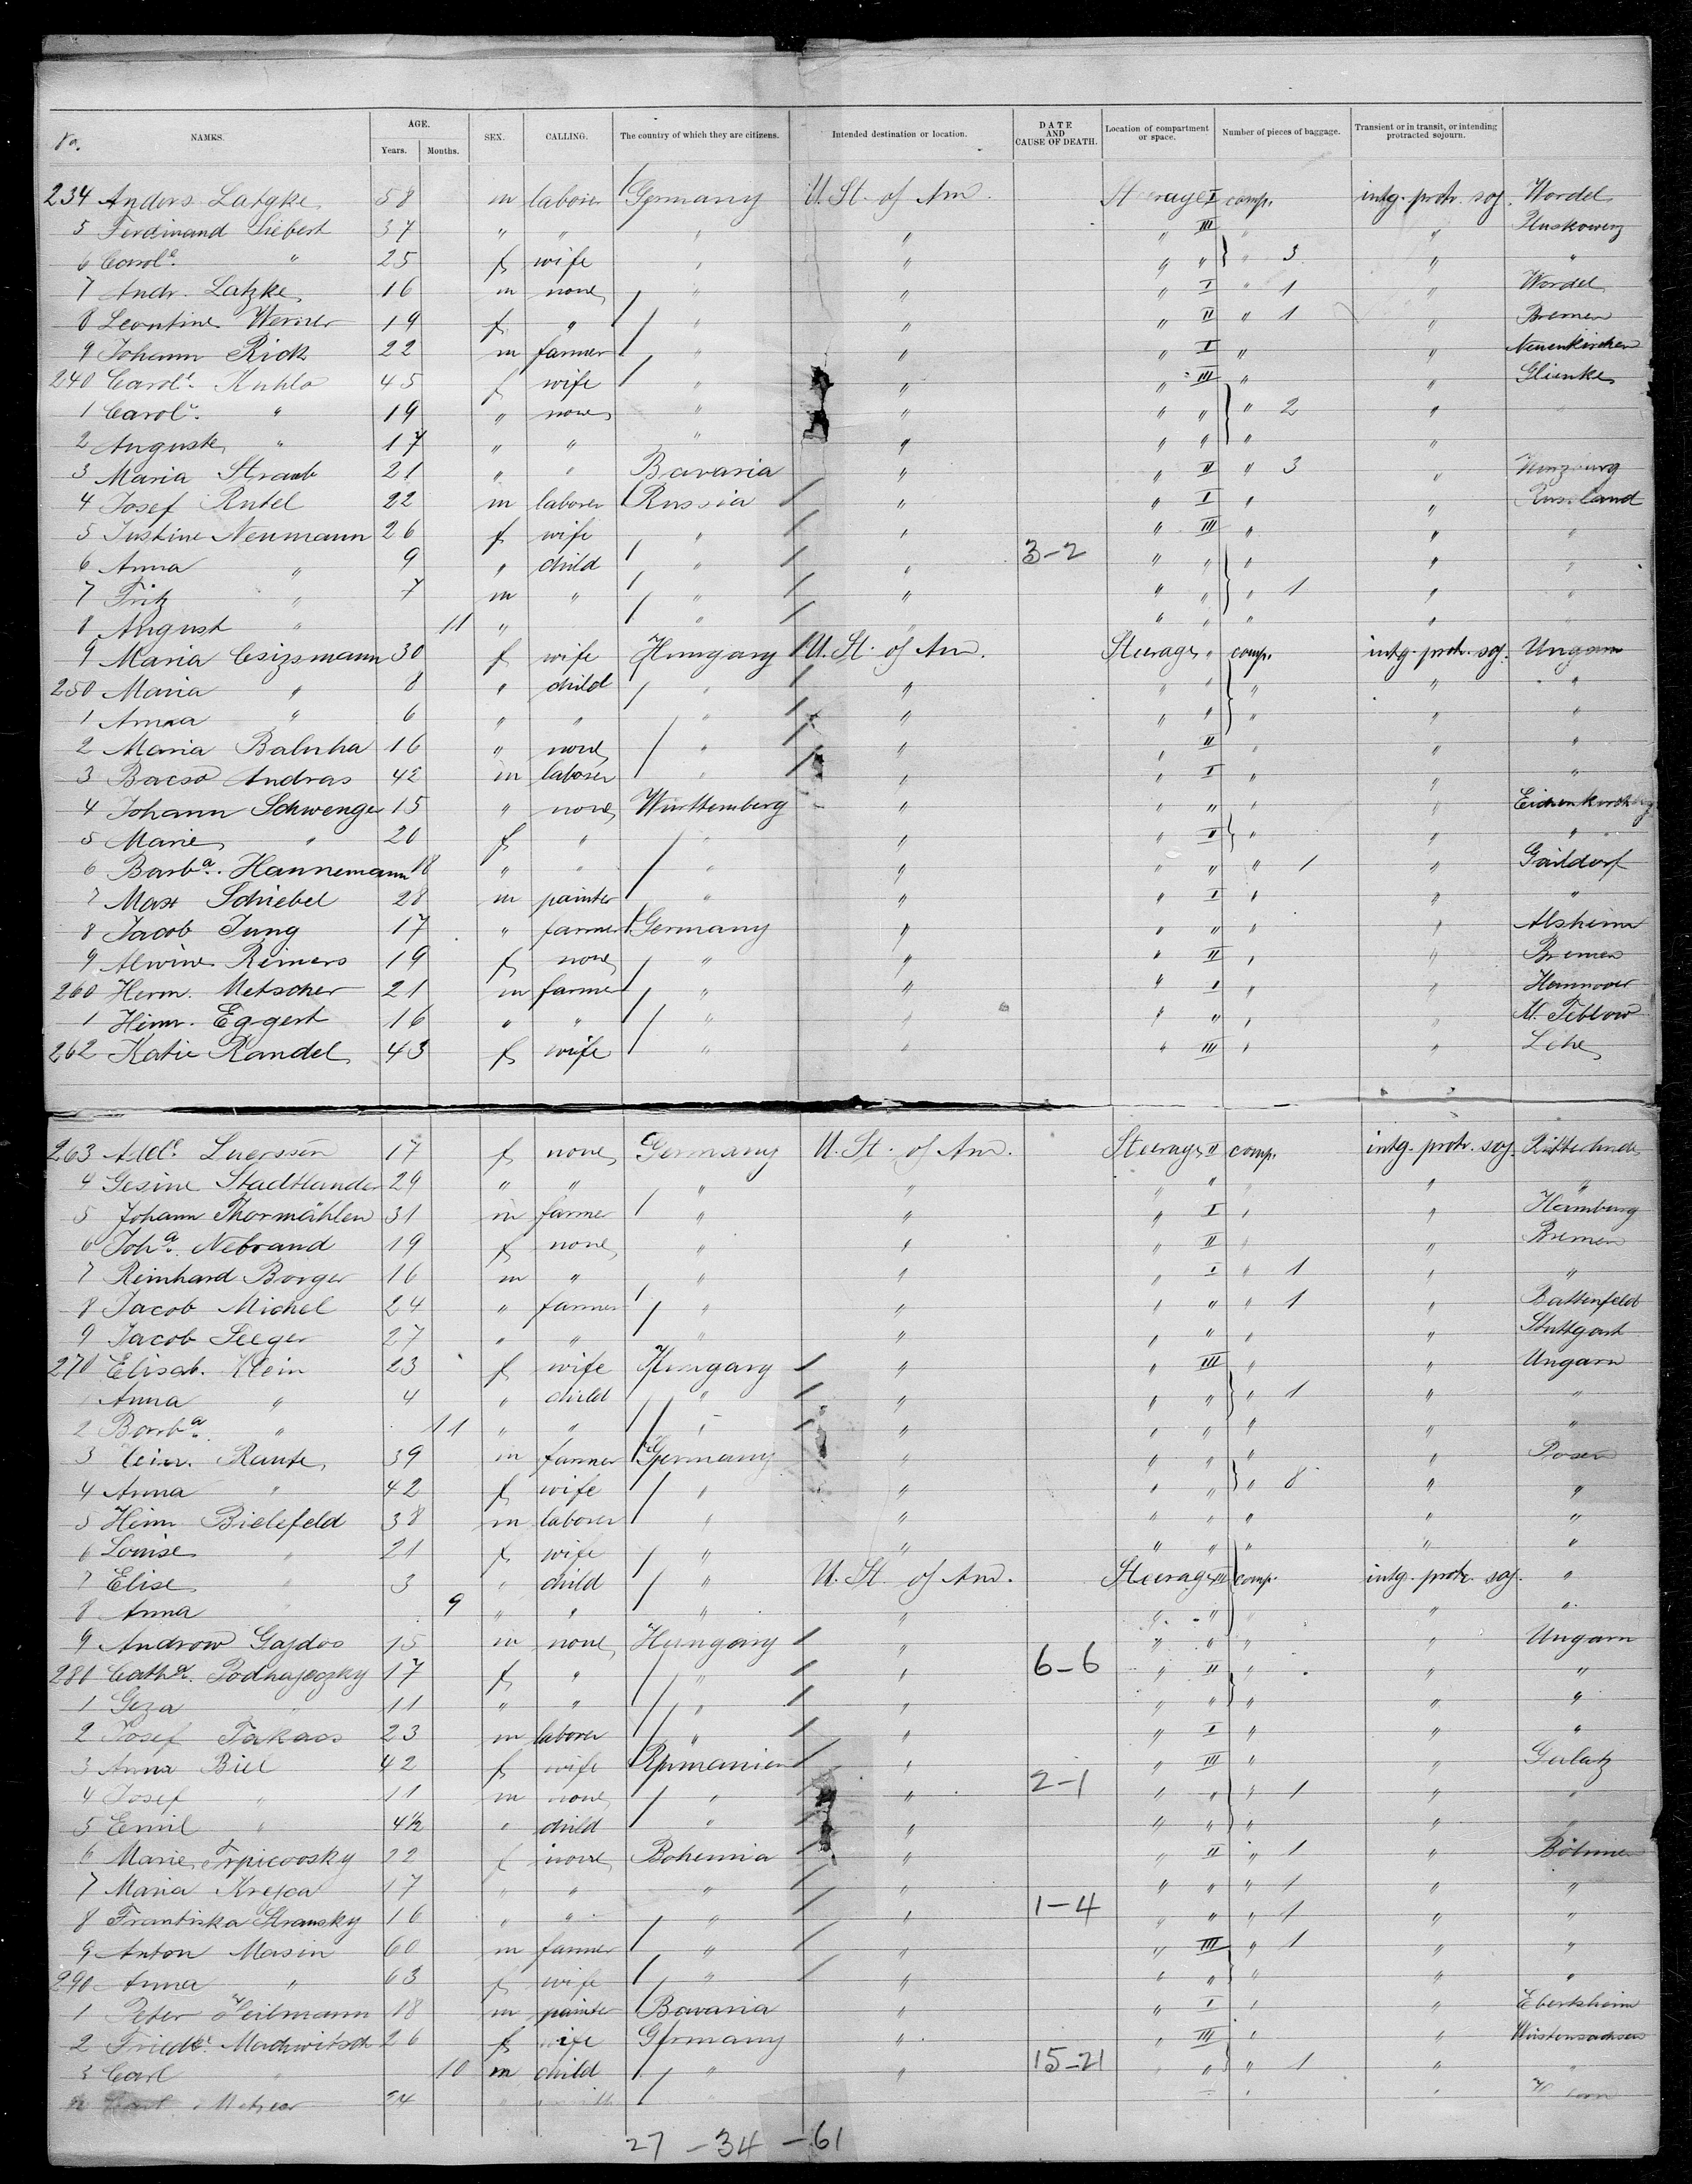 No. NAMES. AGE. Years. Months. SEX. CALLING. The country of which they are citizens. Intended destination or location. DATE AND CAUSE OF DEATH. Location of compartment or space. Number of pieces of baggage. Transient or in transit, or intending protracted sojourn.
234 Anders Latzke 58 m laborer Germany U. St. of Am. Steerage I comp. intg. protr. soj. Wordel
5 Ferdinand Siebert 37 " " " " " III " "
6 Carole " 25 f wife " " " " " 3 " "
7 Andr. Latzke 16 m none " " " I " 1 " Wordel
8 Leontine Werner 19 f " " " " II " 1 " Bremen
9 Johann Rick 22 m farmer " " " I " " Neuenkirchen
240 Carole Kuhlo 45 f wife " " " III " " Glienke
1 Carole " 19 " none " " " " " 2 "
2 Auguste " 17 " " " " " " " "
3 Maria Straub 21 " " Bavaria " " II " 3 "
4 Josef Rutel 22 m laborer Russia " " I " " Russland
5 Justine Neumann 26 f wife " " " III " " "
6 Anna " 9 " child " " 3-2 " " " " "
7 Fritz " 7 m " " " " " " 1 " "
8 August " 11 " " " " " " " "
9 Maria Csizsmann 30 f wife Hungary U. St. of Am. Steerage " comp. intg. protr. soj. Ungarn
250 Maria " 8 " child " " " " " " "
1 Anna " 6 " " " " " " " "
2 Maria Baluha 16 " none " " " II " " "
3 Bacso Andras 42 m laborer " " " I " " "
4 Johann Schwenge 15 " none Württemberg " " " " "
5 Marie " 20 f " " " " II " " "
6 Barba. Hannemann 18 " " " " " " " 1 " Gaildorf
7 Max Schiebel 28 m painter " " " I " " "
8 Jacob Jung 17 " farmer Germany " " " " " Alsheim
9 Alwine Reimers 19 f none " " " II " " Bremen
260 Herm. Metscher 21 m farmer " " " I " " Hannover
1 Heinr. Eggert 16 " " " " " " " "
262 Katie Randel 43 f wife " " " III " " Lehe
263 Adele Luerssen 17 f none Germany U. St. of Am. Steerage II comp. intg. protr. soj.
4 Gesine Stadtlander 29 " " " " " " " " "
5 Johann Thormählen 31 m farmer " " " I " " Hamburg
6 Joha. Nebrand 19 f none " " " II " " Bremen
7 Reinhard Borger 16 m " " " " I " 1 " "
8 Jacob Michel 24 " farmer " " " " " 1 " Battenfeld
9 Jacob Seeger 27 " " " " " " " " Stuttgart
270 Elisab. Klein 23 f wife Hungary " " III " " Ungarn
1 Anna " 4 " child " " " " " 1 " "
2 Barba. " 11 " " " " " " " " "
3 Heinr. Raute 39 m farmer Germany " " " " " Posen
4 Anna " 42 f wife " " " " " 8 " "
5 Heinr Bielefeld 38 m laborer " " " " " " "
6 Louise " 21 f wife " " " " " " "
7 Elise " 3 " child " U. St. of Am. Steerage III comp. intg. protr. soj. "
8 Anna 9 " " " " " " " "
9 Androw Gajdos 15 m none Hungary " " " " " Ungarn
280 Catha. Podhajeczky 17 f " " " 6-6 " II " " "
1 Geza " 11 " " " " " " " " "
2 Josef Takacs 23 m laborer " " " I " " "
3 Anna Biel 42 f wife Rumanien " " III " " Galatz
4 Josef " 11 m none " " 2-1 " " " 1 " "
5 Emil " 4½ " child " " " " " " "
6 Marie Trpicovsky 22 f none Bohemia " " II " 1 " Böhmen
7 Maria Krejca 17 " " " " " " " 1 " "
8 Frantiska Stransky 16 " " " " 1-4 " " " 1 " "
9 Anton Masin 60 m farmer " " " III " 1 " "
290 Anna " 63 f wife " " " " " " "
1 Peter Heilmann 18 m painter Bavaria " " I " " Ebertsheim
2 Friedke. Machwitsch 26 f wife Germany " " III " " Wüstensachsen
3 Carl " 10 m child " " 15-21 " " " 1 " "
24
27 - 34 - 61